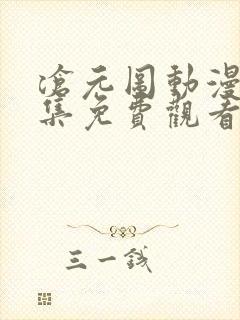 滄元圖動漫
集免費觀看
三一錢